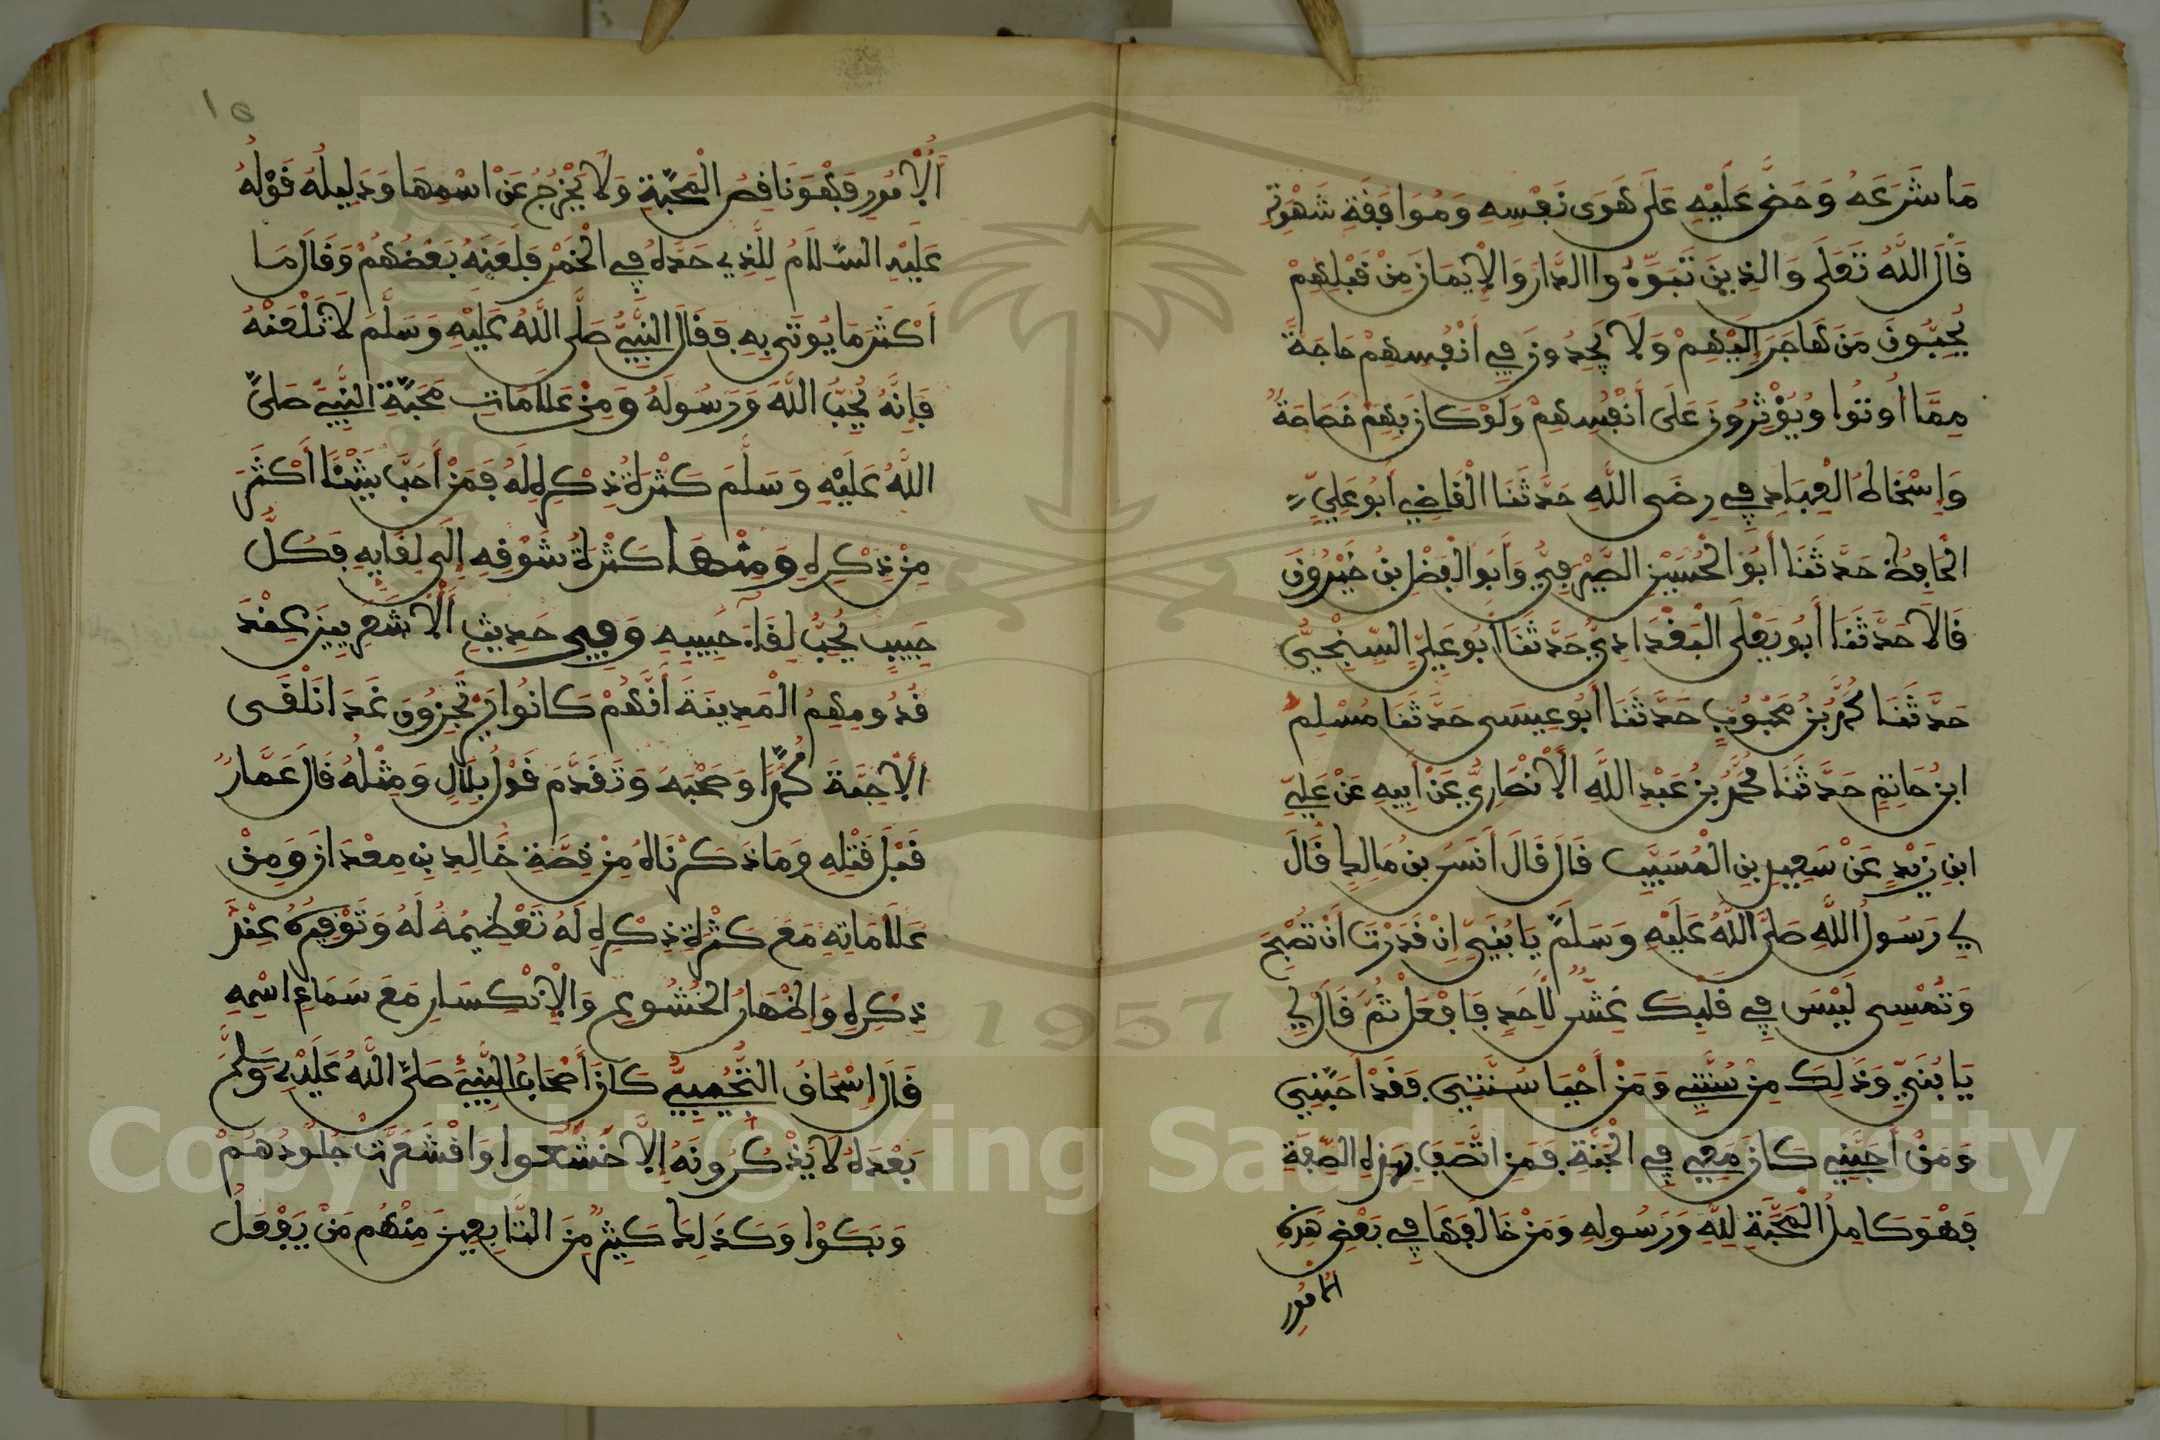 مَا شَرَعَهُ وَحَضَّ عَلَيْهِ عَلَى هَوَى نَفْسِهِ وَمُوَافَقَةِ شَهْوَتِهِ
قَالَ اللَّهُ تَعَلَى وَالذِينَ تَبَوَّءُوا الدَّارَ وَالْإِيمَانَ مِنْ قَبْلِهِمْ
يُحِبُّونَ مَنْ هَاجَرَ إِلَيْهِمْ وَلَا يَجِدُونَ فِي أَنْفُسِهِمْ حَاجَةً
مِمَّا أُوتُوا وَيُوْثِرُونَ عَلَى أَنْفُسِهِمْ وَلَوْ كَانَ بِهِمْ خَصَاصَةٌ
وَإِسْخَاطُ الْعِبَادِ فِي رِضَى اللَّهِ حَدَّثَنَا الْقَاضِي أَبُو عَلِيٍّ
الْحَافِظُ حَدَّثَنَا أَبُو الْحُسَيْنِ الصَّيْرَفِيُّ وَأَبُو الْفَضْلِ بْنُ خَيْرُونَ
قَالَا حَدَّثَنَا أَبُو يَعْلَى الْبَغْدَادِيُّ حَدَّثَنَا أَبُو عَلِيٍّ السِّنْجِيُّ
حَدَّثَنَا مُحَمَّدُ بْنُ مَحْبُوبٍ حَدَّثَنَا أَبُو عِيسَى حَدَّثَنَا مُسْلِم
ابْنُ حَاتِمٍ حَدَّثَنَا مُحَمَّدُ بْنُ عَبْدِ اللَّهِ الْأَنْصَارِيُّ عَنْ أَبِيهِ عَنْ عَلِيِّ
ابْنِ زَيْدٍ عَنْ سَعِيدِ بْنِ الْمُسَيَّبِ قَالَ قَالَ أَنَسُ بْنُ مَالِكٍ قَالَ
لِي رَسُولُ اللَّهِ صَلَّى اللَّهُ عَلَيْهِ وَسَلَّمَ يَا بُنَيَّ إِنْ قَدَرْتَ أَنْ تُصْبِحَ
وَتُمْسِيَ لَيْسَ فِي قَلْبِكَ غِشٌّ لِأَحَدٍ فَافْعَلْ ثُمَّ قَالَ لِي
يَا بُنَيَّ وَذَلِكَ مِنْ سُنَّتِي وَمَنْ أَحْيَا سُنَّتِي فَقَدْ أَحَبَّنِي
وَمَنْ أَحَبَّنِي كَانَ مَعِي فِي الْجَنَّةِ فَمَنِ اتَّصَفَ بِهَذِهِ الصِّفَةِ
فَهْوَ كَامِلُ الْمَحَبَّةِ لِلَّهِ وَرَسُولِهِ وَمَنْ خَالَفَهَا فِي بَعْضِ هَذِهِ
الْأُمُورِ
١٥
الْأُمُورِ فَهْوَ نَاقِصُ الْمَحَبَّةِ وَلَا يَخْرُجُ عَنْ اسْمِهَا وَدَلِيلُهُ قَوْلُهُ
عَلَيْهِ السَّلَامُ لِلَّذِي حَدَّهُ فِي الْخَمْرِ فَلَعَنَهُ بَعْضُهُمْ وَقَالَ مَا
أَكْثَرَ مَا يُوتَى بِهِ فَقَالَ النَّبِيُّ صَلَّى اللَّهُ عَلَيْهِ وَسَلَّمَ لَا تَلْعَنْهُ
فَإِنَّهُ يُحِبُّ اللَّهَ وَرَسُولَهُ وَمِنْ عَلَامَاتِ مَحَبَّةِ النَّبِيِّ صَلَّى
اللَّهُ عَلَيْهِ وَسَلَّمَ كَثْرَةُ ذِكْرِهِ لَهُ فَمَنْ أَحَبَّ شَيْئًا أَكْثَرَ
مِنْ ذِكْرِهِ وَمِنْهَا كَثْرَةُ شَوْقِهِ إِلَى لِقَايِهِ فَكُلُّ
حَبِيبٍ يُحِبُّ لِقَاءَ حَبِيبِهِ وَفِي حَدِيثِ الْأَشْعَرِيِينَ عِنْدَ
قُدُومِهِمُ الْمَدِينَةَ أَنَّهُمْ كَانُوا يَرْتَجِزُونَ غَدًا نَلْقَى
الْأَحِبَّةَ مُحَمَّدًا وَصَحْبَهُ وَتَقَدَّمَ قَوْلُ بِلَالٍ وَمِثْلُهُ قَالَ عَمَّارٌ
قَبْلَ قَتْلِهِ وَمَا ذَكَرْنَاهُ مِنْ قِصَّةِ خَالِدِ بْنِ مِعْدَانَ وَمِنْ
عَلَامَاتِهِ مَعَ كَثْرَةِ ذِكْرِهِ لَهُ تَعْظِيمُهُ لَهُ وَتَوْقِيرُهُ عِنْدَ
ذِكْرِهِ وَإِظْهَارُ الْخُشُوعِ وَالْإِنْكِسَارِ مَعَ سَمَاعِ اسْمِهِ
قَالَ إِسْحَاقُ التُّجِيبِيُّ كَانَ أَصْحَابُ النَّبِيِّ صَلَّى اللَّهُ عَلَيْهِ وَسَلَّمَ
بَعْدَهُ لَا يَذْكُرُونَهُ إِلَّا خَشَعُوا وَاقْشَعَرَّتْ جُلُودُهُمْ
وَبَكَوْا وَكَذَلِكَ كَثِيرٌ مِنَ التَّابِعِينَ مِنْهُم مَنْ يَفْعَلُ
1957
Copyright © King Saud University